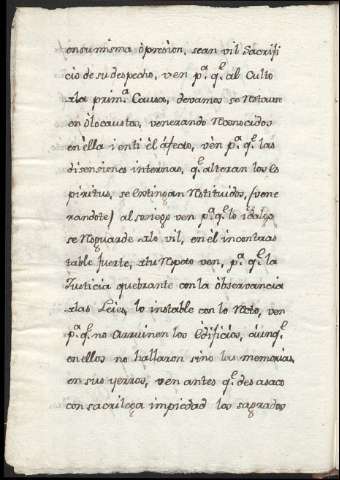 en su misma opresion, sean vil Sacrifi
cio de su despecho, ven pª qᵉ al Culto
ala primª Causa, devamos se
en Olocaustos, venerando Reconocidos
en èlla i enti èl áfecto, vèn pª qᵉ las
disensiones interinas, qᵉ alteran los es
piritus, se extingan Restituidos, (vene
randote) al sosiego ven pª qᵉ lo idalgo
se Resguarde alo vil, en èl incontras
table fuerte, atu Repato ven, pª qᵉ la
Justicia quebrante con la òbservancia
alas Leies, lo instable con lo Recto, ven
pª qᵉ no Arruinen los Edificios, aunqᵉ
en ellos no hallaron sino las memorias,
en sus yerros, ven antes qᵉ desasaco
con sacrilega impiedad los sagrados